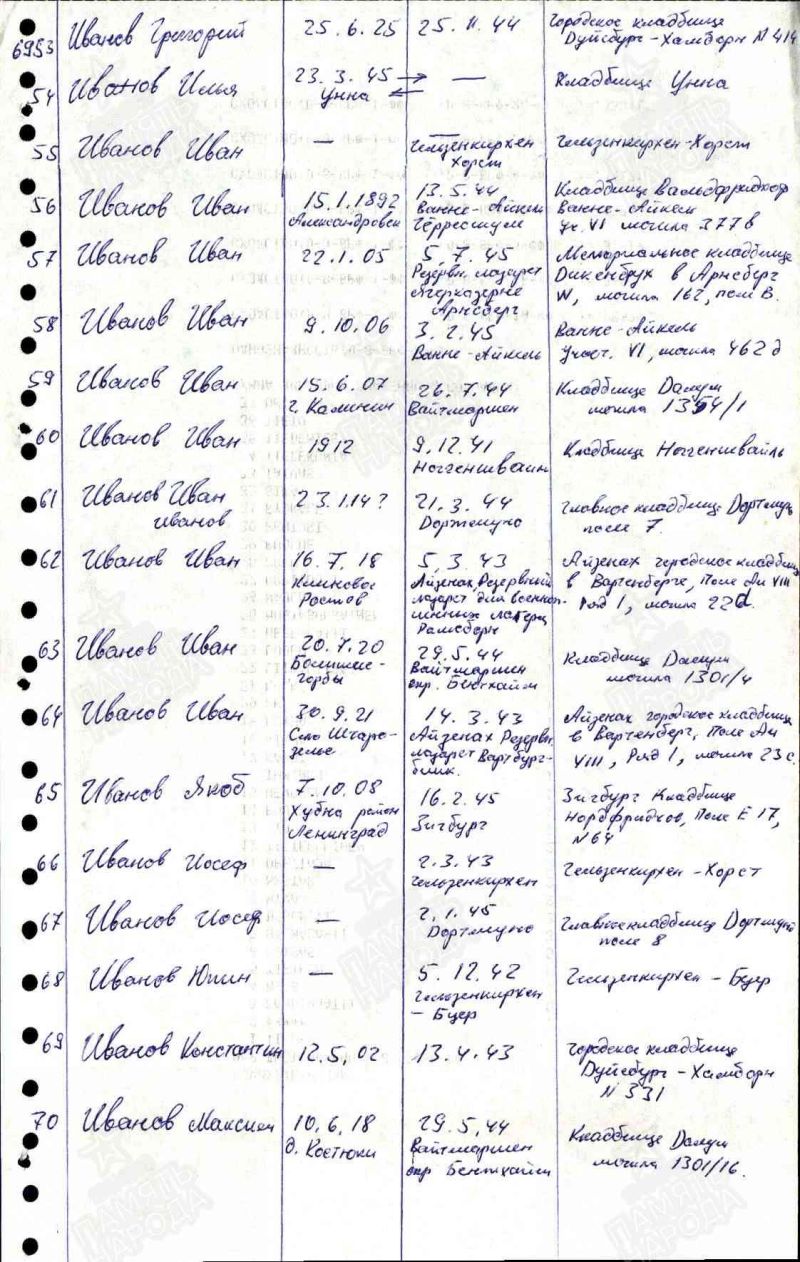 6953 Иванов Григорий 25.6.25 25.11.44 Городское кладбище
Дуйсбург-Хамборн N 414
54 Иванов Илья 23.3.45 → — Кладбище Унна
Унна ←
55 Иванов Иван — Гельзенкирхен Гельзенкирхен-Хорст
Хорст
56 Иванов Иван 15.1.1892 13.5.44 Кладбище Вальдфридхоф
Александровск Ванне-Айкель Ванне-Айкель
уч. VI могила 377в
57 Иванов Иван 22.1.05 5.7.45 Мемориальное кладбище
Резервн. лазарет Дикенбрух в Арнсберг
Егерказерне W, могила 162, поле В.
Арнсберг
58 Иванов Иван 9.10.06 3.2.45 Ванне-Айкель
Ванне-Айкель Участ. VI, могила 462 д
59 Иванов Иван 15.6.07 26.7.44 Кладбище Далум
г. Калинин Вайтмаршен могила 1354/1
60 Иванов Иван 1912 9.12.41 Кладбище Ноггеншвайль
Ноггеншвайль
61 Иванов Иван 23.1.14? 21.3.44 Главное кладбище Дортмунд
иванов Дортмунд поле 7.
62 Иванов Иван 16.7.18 5.3.43 Айзенах городское кладбище
Айзенах, Резервный в Вартенберге, Поле Ан VIII
Ростов лазарет для военно- Ряд 1, могила 22d.
пленных лагерь
63 Иванов Иван 20.7.20 29.5.44 Кладбище Далум
Большие- Вайтмаршен могила 1301/4
горбы окр. Бентхайм
64 Иванов Иван 30.9.21 14.3.43 Айзенах городское кладбище
Село Айзенах Резервн. в Вартенберг, Поле Ан
лазарет Вартбург- VIII, Ряд 1, могила 23 с.
65 Иванов Якоб 7.10.08 16.2.45 Зигбург Кладбище
Хубна район Зигбург Нордфридхов, Поле Е 17,
Ленинград N 64
66 Иванов Иосеф — 2.3.43 Гельзенкирхен-Хорст
Гельзенкирхен
67 Иванов Иосеф — 2.1.45 Главное кладбище Дортмунд
Дортмунд поле 8
68 Иванов Юпин — 5.12.42 Гельзенкирхен - Буер
Гельзенкирхен
- Буер
69 Иванов Константин 12.5.02 13.4.43 Городское кладбище
Дуйсбург-Хамборн
N 331
70 Иванов Максим 10.6.18 29.5.44 Кладбище Далум
д. Костюки Вайтмаршен могила 1301/16.
окр Бентхайм
ПАМЯТЬ
НАРОДА